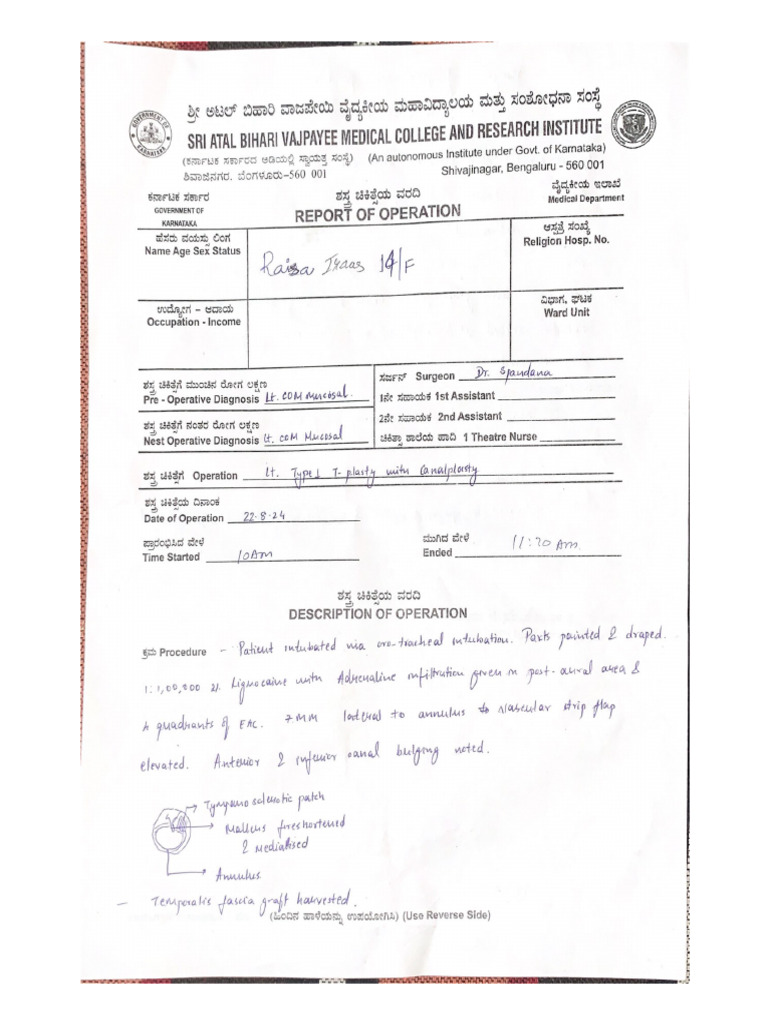 ಶ್ರೀ ಅಟಲ್ ಬಿಹಾರಿ ವಾಜಪೇಯಿ ವೈದ್ಯಕೀಯ ಮಹಾವಿದ್ಯಾಲಯ ಮತ್ತು ಸಂಶೋಧನಾ ಸಂಸ್ಥೆ
SRI ATAL BIHARI VAJPAYEE MEDICAL COLLEGE AND RESEARCH INSTITUTE
(ಕರ್ನಾಟಕ ಸರ್ಕಾರದ ಅಡಿಯಲ್ಲಿ ಸ್ವಾಯತ್ತ ಸಂಸ್ಥೆ) (An autonomous Institute under Govt. of Karnataka)
ಶಿವಾಜಿನಗರ, ಬೆಂಗಳೂರು-560 001 Shivajinagar, Bengaluru - 560 001
ಕರ್ನಾಟಕ ಸರ್ಕಾರ ಶಸ್ತ್ರ ಚಿಕಿತ್ಸೆಯ ವರದಿ ವೈದ್ಯಕೀಯ ಇಲಾಖೆ
GOVERNMENT OF KARNATAKA REPORT OF OPERATION Medical Department
ಹೆಸರು ವಯಸ್ಸು ಲಿಂಗ ಆಸ್ಪತ್ರೆ ಸಂಖ್ಯೆ
Name Age Sex Status Raisa 14/F Religion Hosp. No.
ಉದ್ಯೋಗ - ಆದಾಯ ವಿಭಾಗ, ಘಟಕ
Occupation - Income Ward Unit
ಶಸ್ತ್ರ ಚಿಕಿತ್ಸೆಗೆ ಮುಂಚಿನ ರೋಗ ಲಕ್ಷಣ ಸರ್ಜನ್ Surgeon Dr. Spandana
Pre - Operative Diagnosis Lt. COM Mucosal. 1ನೇ ಸಹಾಯಕ 1st Assistant
ಶಸ್ತ್ರ ಚಿಕಿತ್ಸೆಗೆ ನಂತರ ರೋಗ ಲಕ್ಷಣ 2ನೇ ಸಹಾಯಕ 2nd Assistant
Nest Operative Diagnosis Lt COM Mucosal ಚಿಕಿತ್ಸಾ ಶಾಲೆಯ ಪಾದಿ 1 Theatre Nurse
ಶಸ್ತ್ರ ಚಿಕಿತ್ಸೆಗೆ Operation Lt. Type 1 T-plasty with Canalplasty
ಶಸ್ತ್ರ ಚಿಕಿತ್ಸೆಯ ದಿನಾಂಕ
Date of Operation 22-8-24
ಪ್ರಾರಂಭಿಸಿದ ವೇಳೆ ಮುಗಿದ ವೇಳೆ
Time Started 10Am Ended 11:20 Am
ಶಸ್ತ್ರ ಚಿಕಿತ್ಸೆಯ ವರದಿ
DESCRIPTION OF OPERATION
ಕ್ರಮ Procedure - Patient intubated via oro-tracheal intubation. Parts painted & draped.
1:1,00,000 2% Lignocaine with Adrenaline infiltration given in post-aural area &
4 quadrants of EAC. 7MM lateral to annulus vascular strip flap
elevated. Anterior & inferior canal bulging noted.
Tympano sclerotic patch
Malleus foreshortened
& Medialised
Annulus
- Temporalis fascia graft harvested.
(ಹಿಂದಿನ ಹಾಳೆಯನ್ನು ಉಪಯೋಗಿಸಿ) (Use Reverse Side)